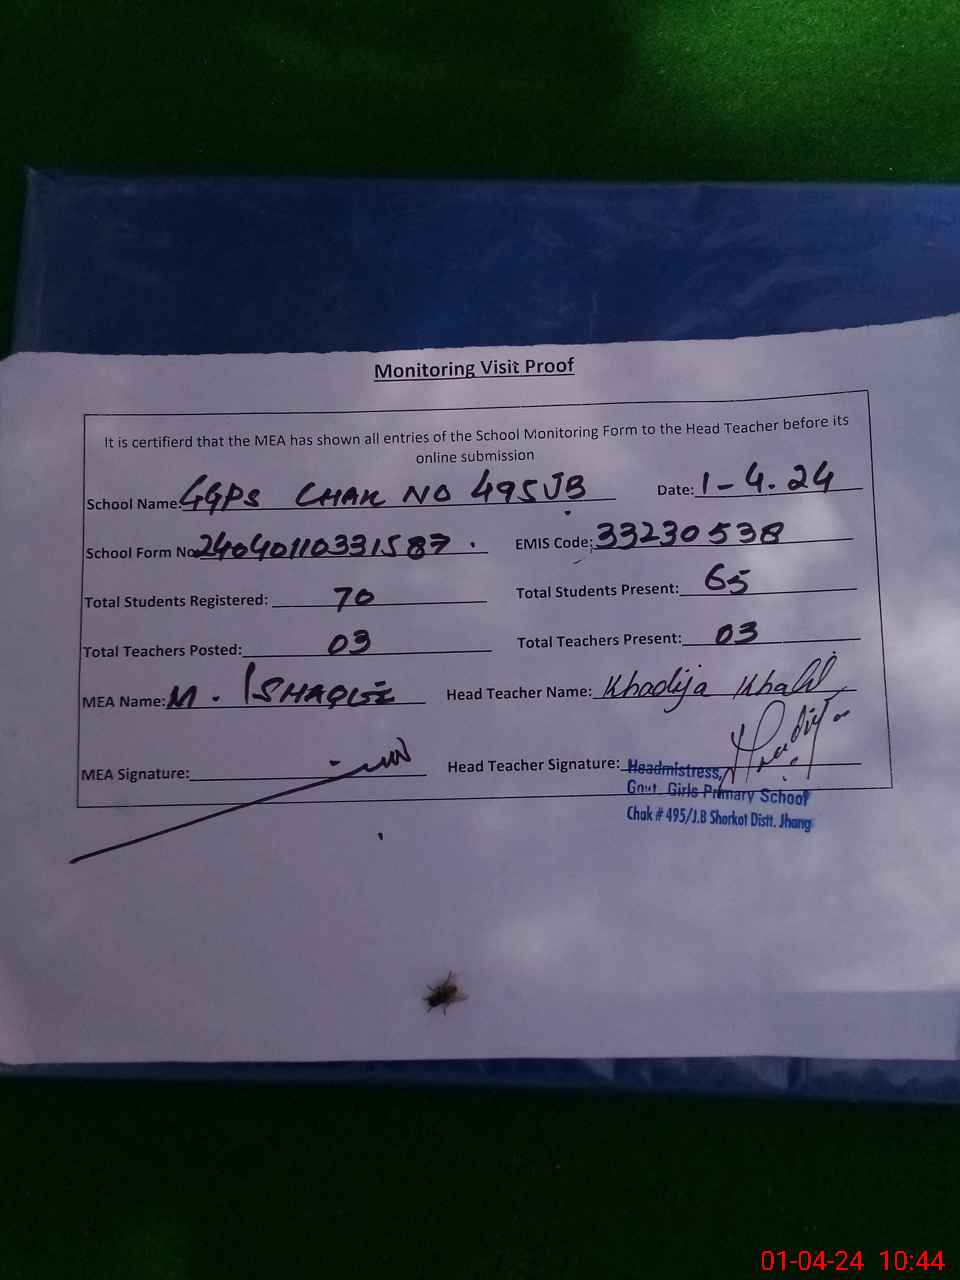 Monitoring Visit Proof
It is certifierd that the MEA has shown all entries of the School Monitoring Form to the Head Teacher before its
online submission
School Name: GGPS CHAK NO 495JB Date: 1-4.24
School Form No 24040110331587. EMIS Code: 33230538
Total Students Registered: 70 Total Students Present: 65
Total Teachers Posted: 03 Total Teachers Present: 03
MEA Name: M. Head Teacher Name: Khadija Khalil
MEA Signature: Head Teacher Signature:
Headmistress,
Govt. Girls Primary School
Chak # 495/J.B Shorkot Distt. Jhang
01-04-24 10:44